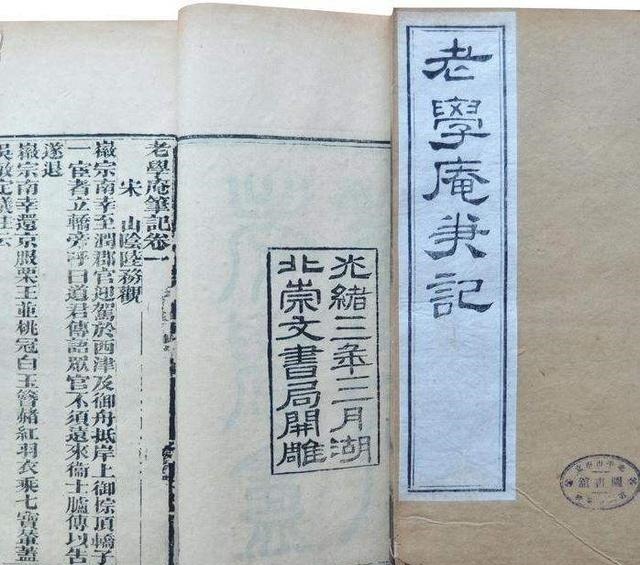 老學庵筆記
光緒三年三月湖
北崇文書局開雕
老學庵筆記卷一
宋 山陰陸務觀
徽宗南幸至潤郡官迎駕於西津及御舟抵岸上御棕頂轎子
一宦者立轎旁呼曰道君傳語眾官不須遠來衞士臚傳以告
遂退
徽宗南幸還京服栗玉並桃冠白玉簪赭紅羽衣乗七寶輦蓋
圖書館